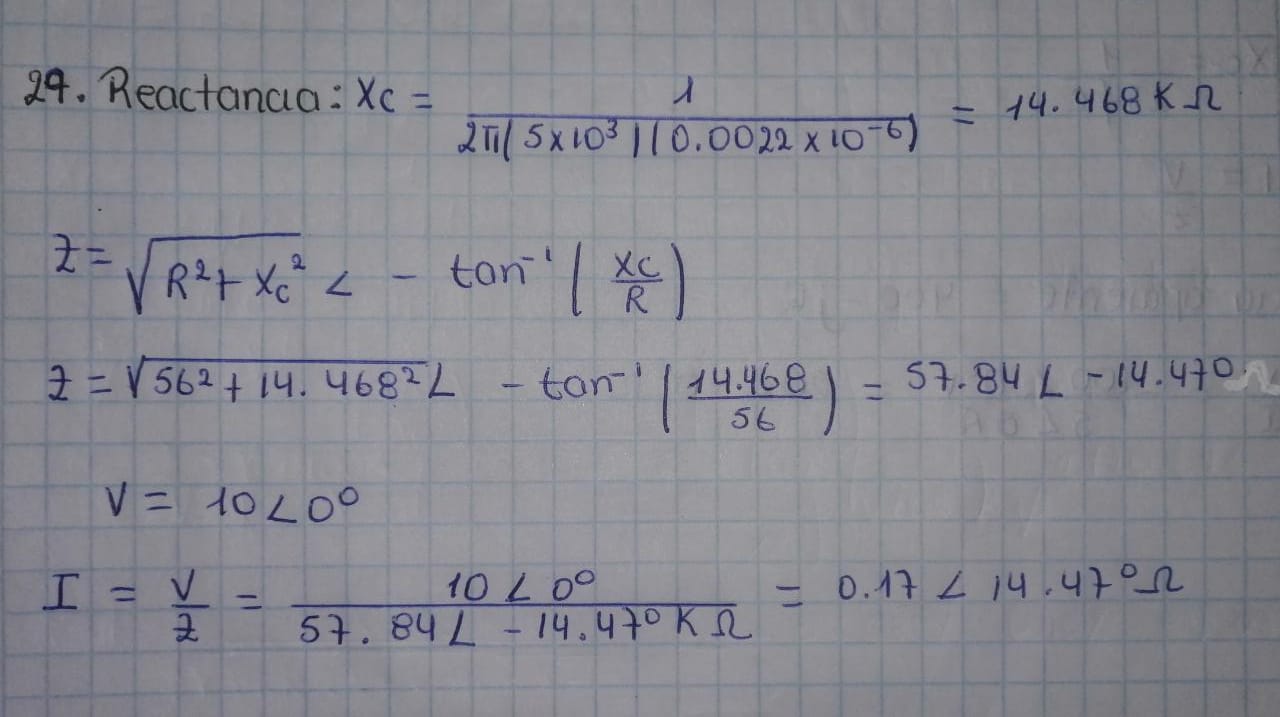 29. Reactancia: Xc = 1 / 2π(5x10³)(0.0022 x 10⁻⁶) = 14.468 K Ω
Z = √R² + Xc² < - tan⁻¹ (XC / R)
Z = √56² + 14.468² ∠ - tan⁻¹ (14.468 / 56) = 57.84 ∠ -14.47°
V = 10 < 0°
I = V / Z = 10 < 0° / 57.84 ∠ -14.47° K Ω = 0.17 < 14.47° Ω